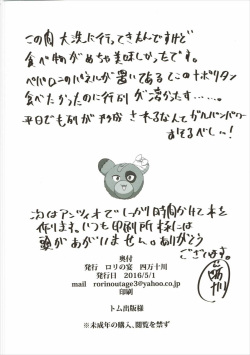 この間大洗に行ってきたんですけど
食べ物がめちゃ美味しかったです。
ペパロニのパネルが置いてあるとこのナポリタン
食べたかったのに行列が凄かったす……。
平日でも列が形成されるなんてガルパンパワー
おそるべしっ!
次はアンツィオでしっかり時間かけて本を
作ります。いつも印刷所様には
頭があがいません。ありがとう
ございます。
奥付
発行 ロリの宴 四万十川
発行日 2016/5/1
mail rorinoutage3@yahoo.co.jp
印刷
トム出版様
※未成年の購入、閲覧を禁ず